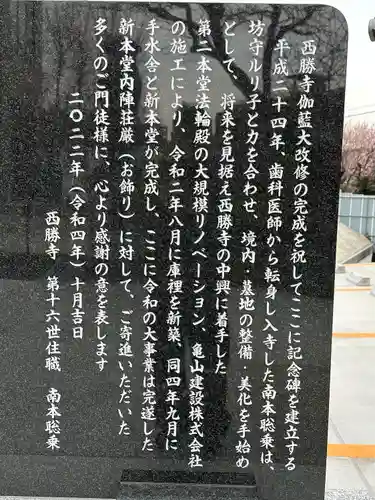 西勝寺伽藍大改修の完成を祝してここに記念碑を建立する
平成二十四年、歯科医師から転身し入寺した南本聡乗は、
坊守ルリ子と力を合わせ、境内・墓地の整備・美化を手始め
として、将来を見据え西勝寺の中興に着手した
第二本堂法輪殿の大規模リノベーション、亀山建設株式会社
の施工により、令和二年八月に庫裡を新築、同四年九月に
手水舎と新本堂が完成し、ここに令和の大事業は完遂した
新本堂内陣荘厳（お飾り）に対して、ご寄進いただいた
多くのご門徒様に、心より感謝の意を表します
二〇二二年（令和四年）十月吉日
西勝寺 第十六世住職 南本聡乗